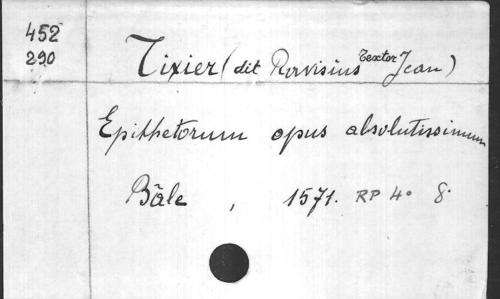 452
290
Tixier (dit Ravisius Textor Jean)
Epithetorum opus absolutissimum
Bâle, 1571. RP 4° 8°